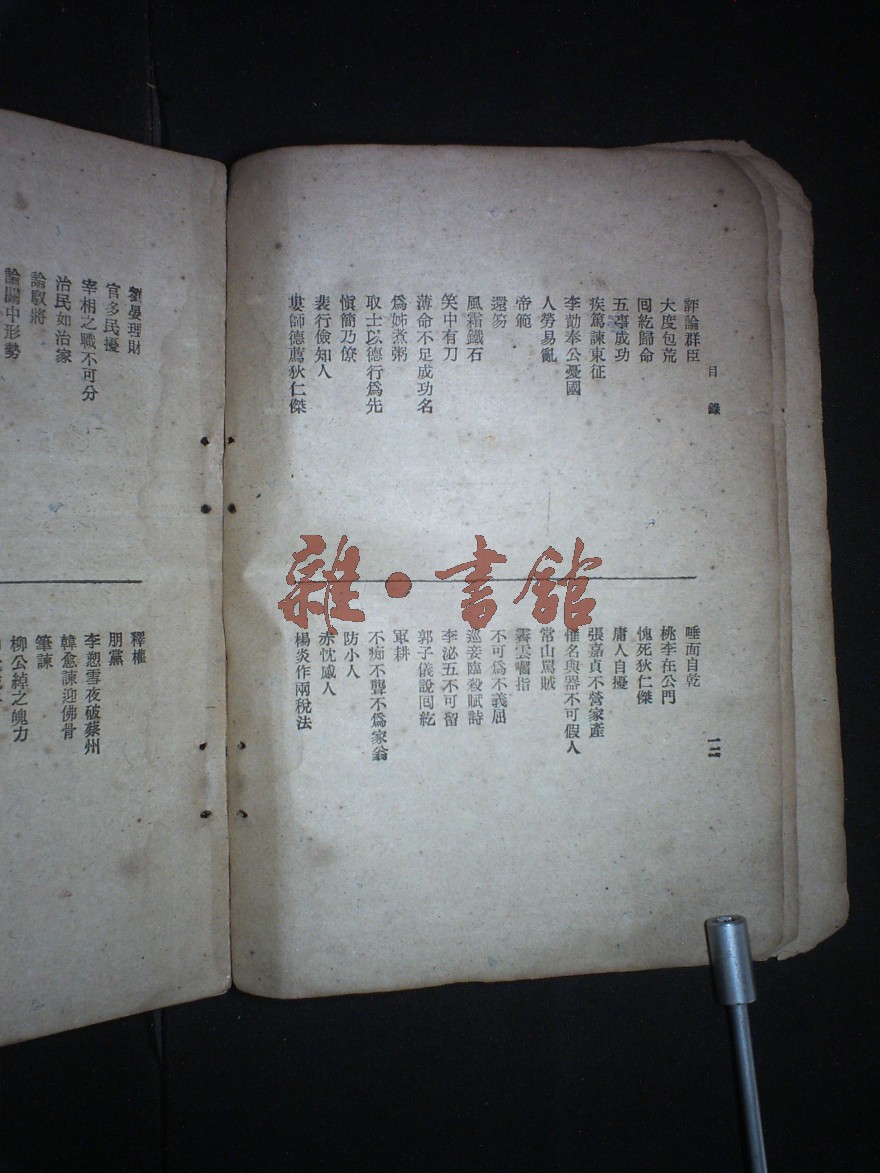 目錄
一二
評論群臣
大度包荒
囘紇歸命
五事成功
疾篤諫東征
李勣奉公憂國
人勞易亂
帝範
還笏
風霜鐵石
笑中有刀
薄命不足成功名
為姊煮粥
取士以德行爲先
慎簡乃僚
裴行儉知人
婁師德薦狄仁傑
唾面自乾
桃李在公門
愧死狄仁傑
庸人自擾
張嘉貞不營家產
惟名與器不可假人
常山罵賊
霽雲囓指
不可為不義屈
巡妾臨殺賦詩
李泌五不可留
郭子儀說囘紇
軍耕
不痴不聾不爲家翁
防小人
赤忱感人
楊炎作兩稅法
劉晏理財
官多民擾
宰相之職不可分
治民如治家
論馭將
論關中形勢
釋權
朋黨
李愬雪夜破蔡州
韓愈諫迎佛骨
筆諫
柳公綽之魄力
雜·書館